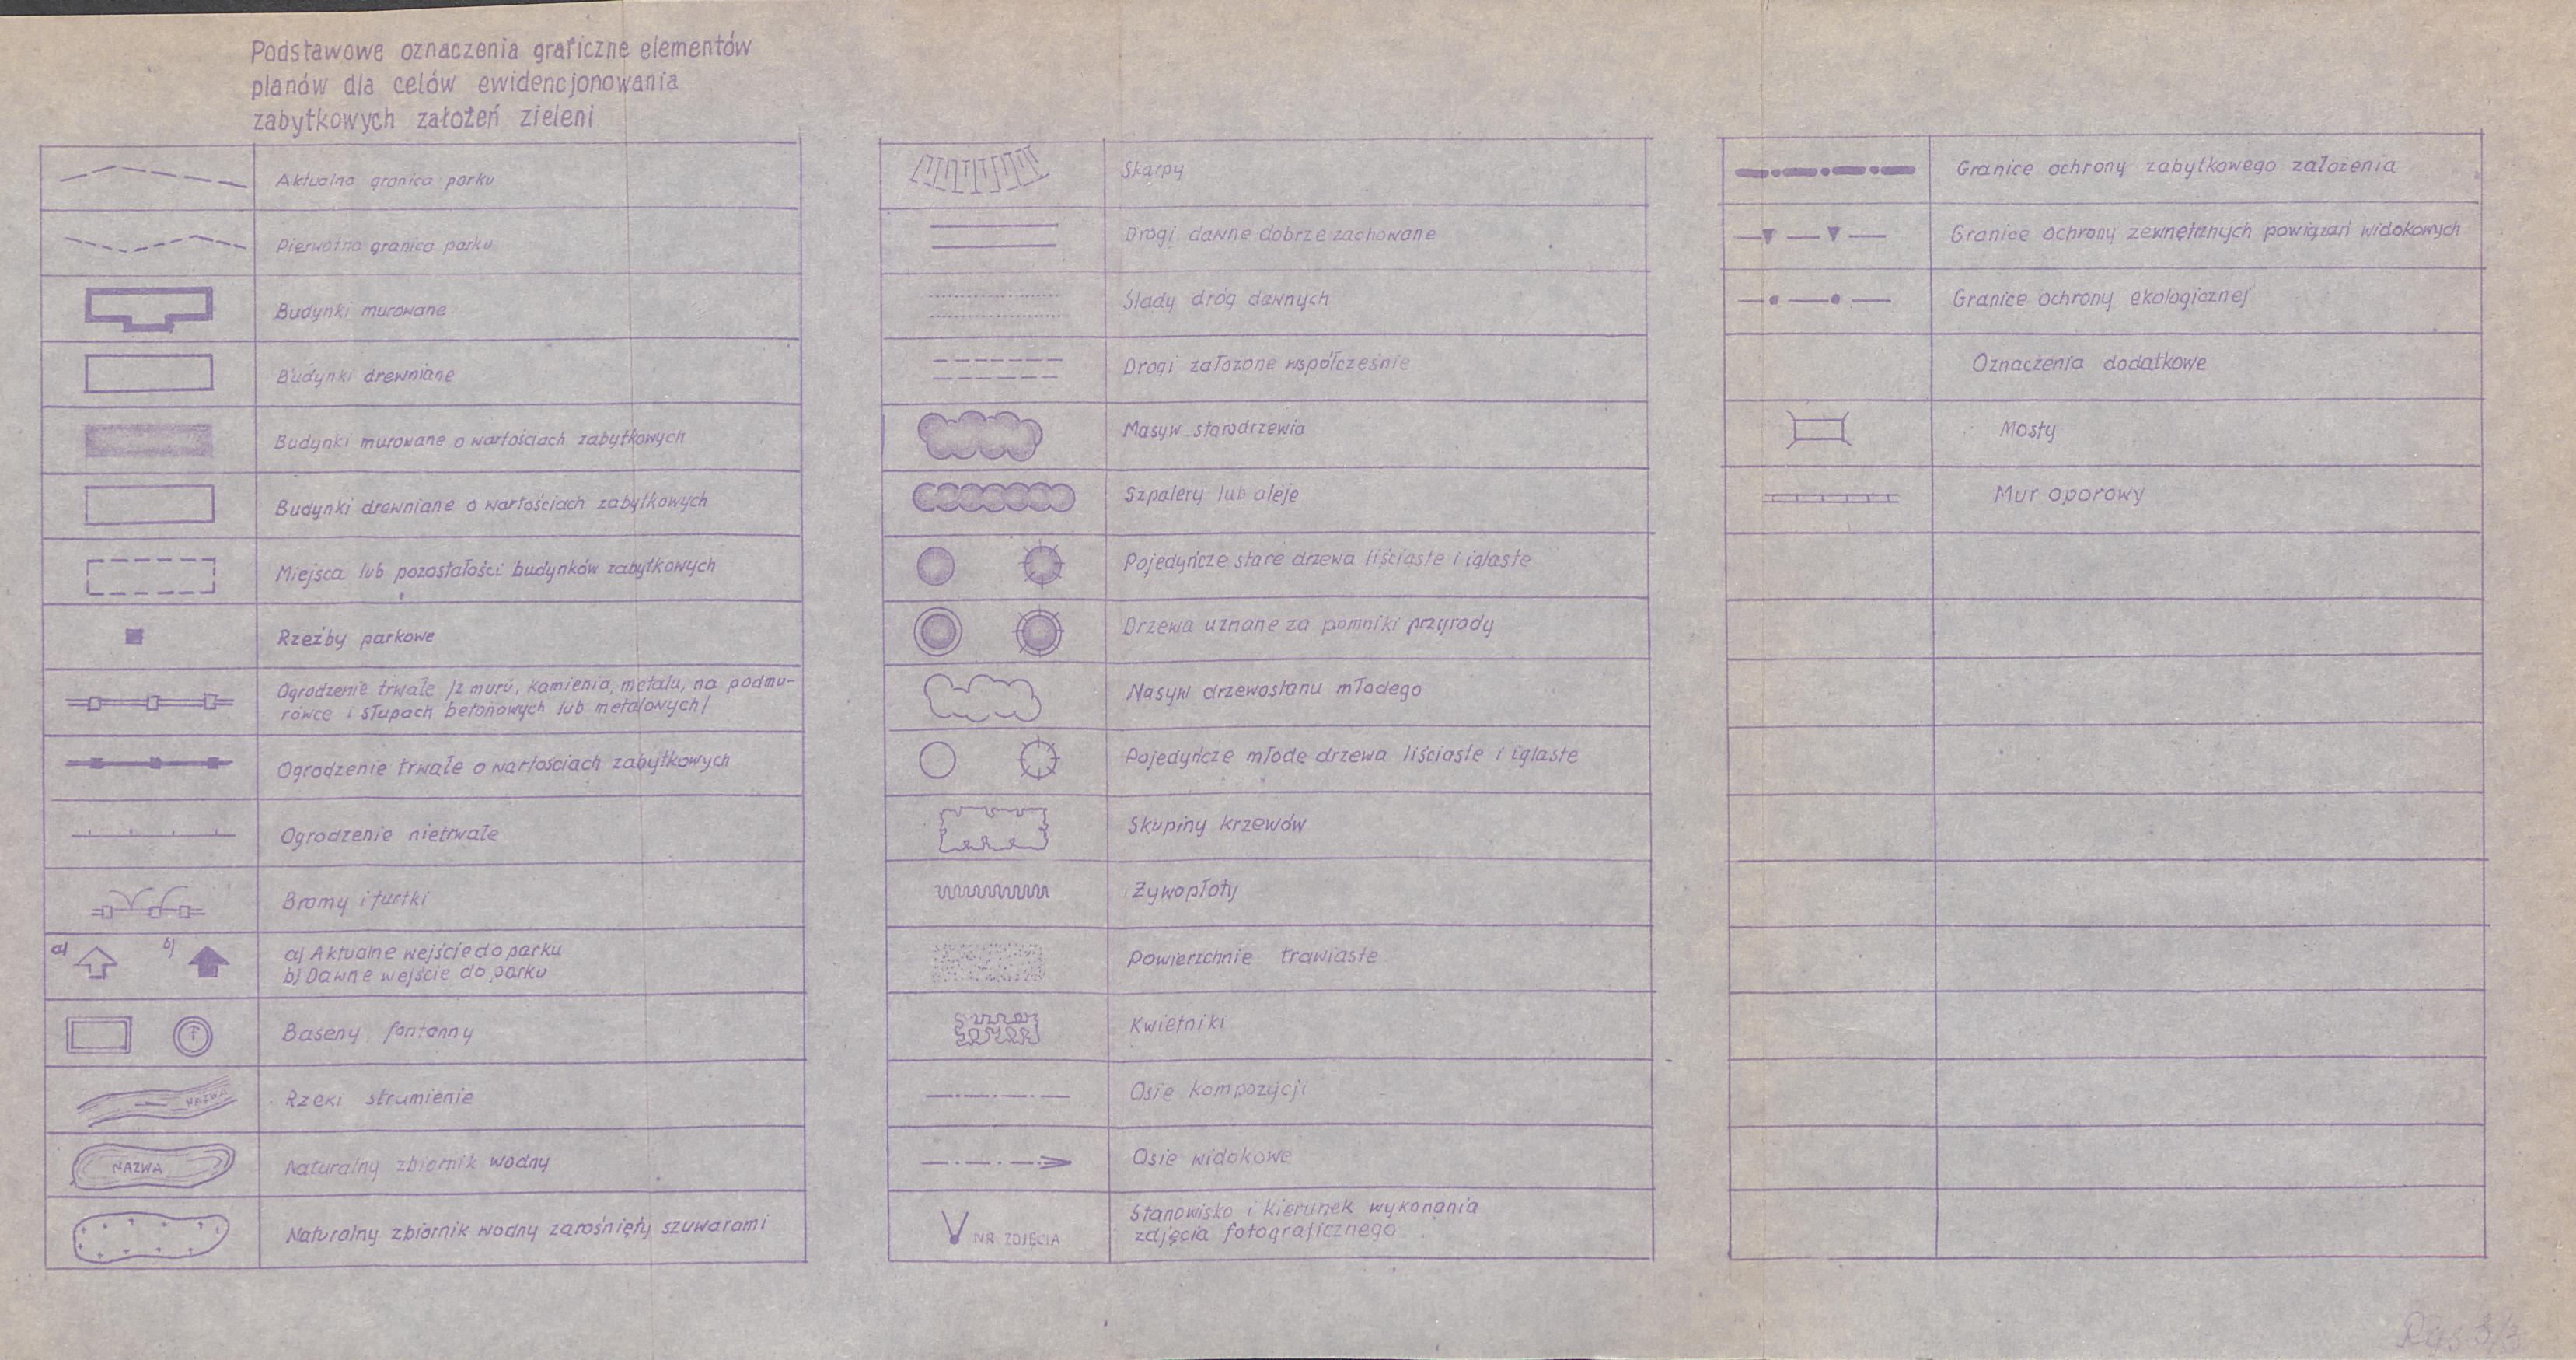 Podstawowe oznaczenia graficzne elementów
planów dla celów ewidencjonowania
zabytkowych założeń zieleni
Aktualna granica parku
Pierwotna granica parku
Budynki murowane
Budynki drewniane
Budynki murowane o wartościach zabytkowych
Budynki drewniane o wartościach zabytkowych
Miejsca lub pozostałości budynków zabytkowych
Rzeźby parkowe
Ogrodzenie trwałe /z muru, kamienia, metalu, na podmu-
rówce i słupach betonowych lub metalowych/
Ogrodzenie trwałe o wartościach zabytkowych
Ogrodzenie nietrwałe
Bramy i furtki
a) b)
a) Aktualne wejście do parku
b) Dawne wejście do parku
Baseny fontanny
NAZWA
Rzeki strumienie
NAZWA
Naturalny zbiornik wodny
Naturalny zbiornik wodny zarośnięty szuwarami
Skarpy
Drogi dawne dobrze zachowane
Ślady dróg dawnych
Drogi założone współcześnie
Masyw starodrzewia
Szpalery lub aleje
Pojedyńcze stare drzewa liściaste i iglaste
Drzewa uznane za pomniki przyrody
Masyw drzewostanu młodego
Pojedyńcze młode drzewa liściaste i iglaste
Skupiny krzewów
Żywopłoty
Powierzchnie trawiaste
Kwietniki
Osie kompozycji
Osie widokowe
NR ZDJĘCIA
Stanowisko i kierunek wykonania
zdjęcia fotograficznego
Granice ochrony zabytkowego założenia
Granice ochrony zewnętrznych powiązań widokowych
Granice ochrony ekologicznej
Oznaczenia dodatkowe
Mosty
Mur oporowy